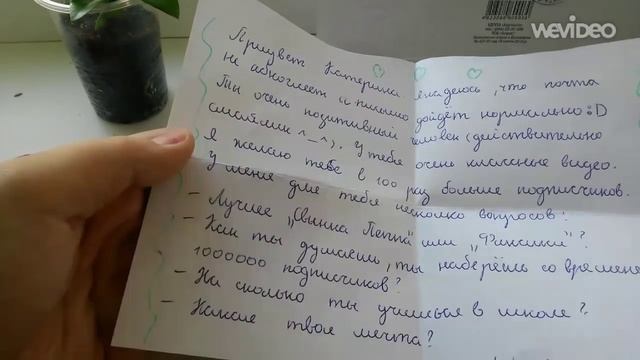 WEVIDEO
Приувет Катерина надеюсь, что почта
не накосячет и письмо дойдёт нормально :D
Ты очень позитивный человек (действительно
смайлики ^_^). У тебя очень классные видео.
Я желаю тебе в 100 раз больше подписчиков.
У меня для тебя несколько вопросов:
- Лучшее „Свинка Пеппа" или „Фиксики"?
- Как ты думаешь, ты наберёшь со времене
1000000 подписчиков?
- На сколько ты учишься в школе?
- Какая твоя мечта?